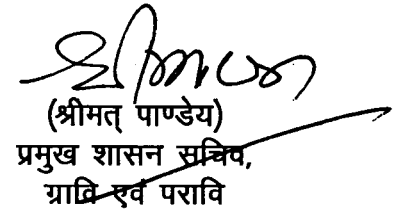 (श्रीमत् पाण्डेय)
प्रमुख शासन सचिव,
ग्रावि एवं परावि